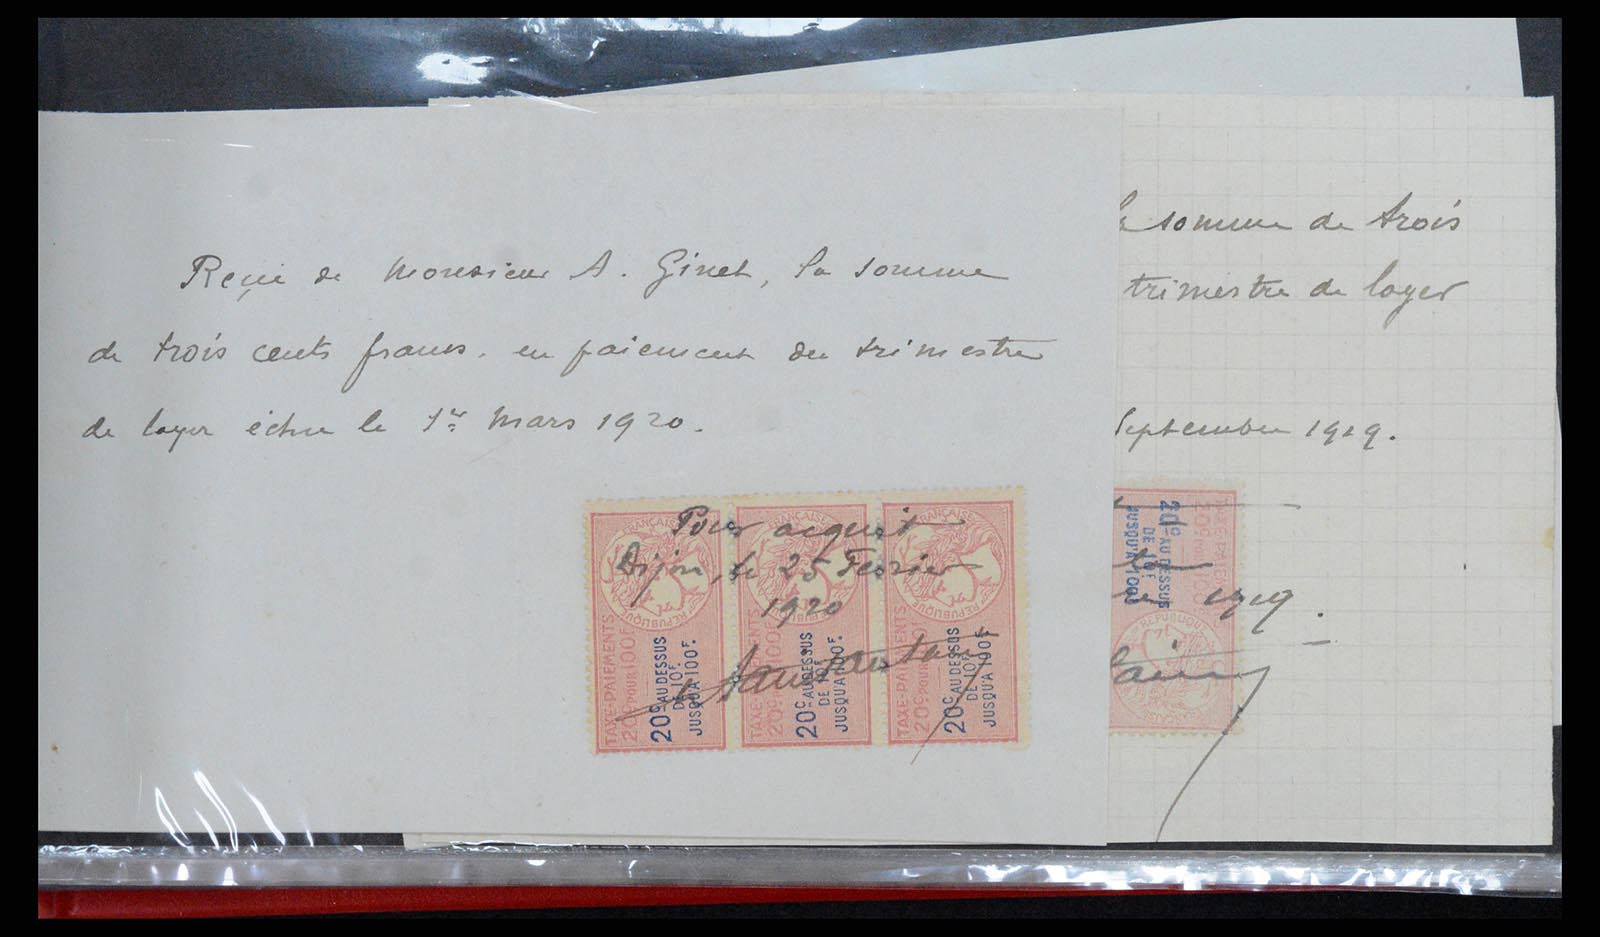 Reçu de Monsieur A. Ginet, la somme
de trois cents francs, en paiement du trimestre
de loyer échu le 1er Mars 1920.
Pour acquit
Dijon, le 25 Fevrier
1920
RÉPUBLIQUE FRANÇAISE
TAXE-PAIEMENTS
20c POUR 100F
20c AU DESSUS
DE 10F
JUSQU'A 100F.
RÉPUBLIQUE FRANÇAISE
TAXE-PAIEMENTS
20c POUR 100F
20c AU DESSUS
DE 10F
JUSQU'A 100F.
RÉPUBLIQUE FRANÇAISE
TAXE-PAIEMENTS
20c POUR 100F
20c AU DESSUS
DE 10F
JUSQU'A 100F.
la somme de trois
trimestre de loyer
Septembre 1919.
1919.
20c AU DESSUS
DE 10F
JUSQU'A 100F
RÉPUBLIQUE FRANÇAISE